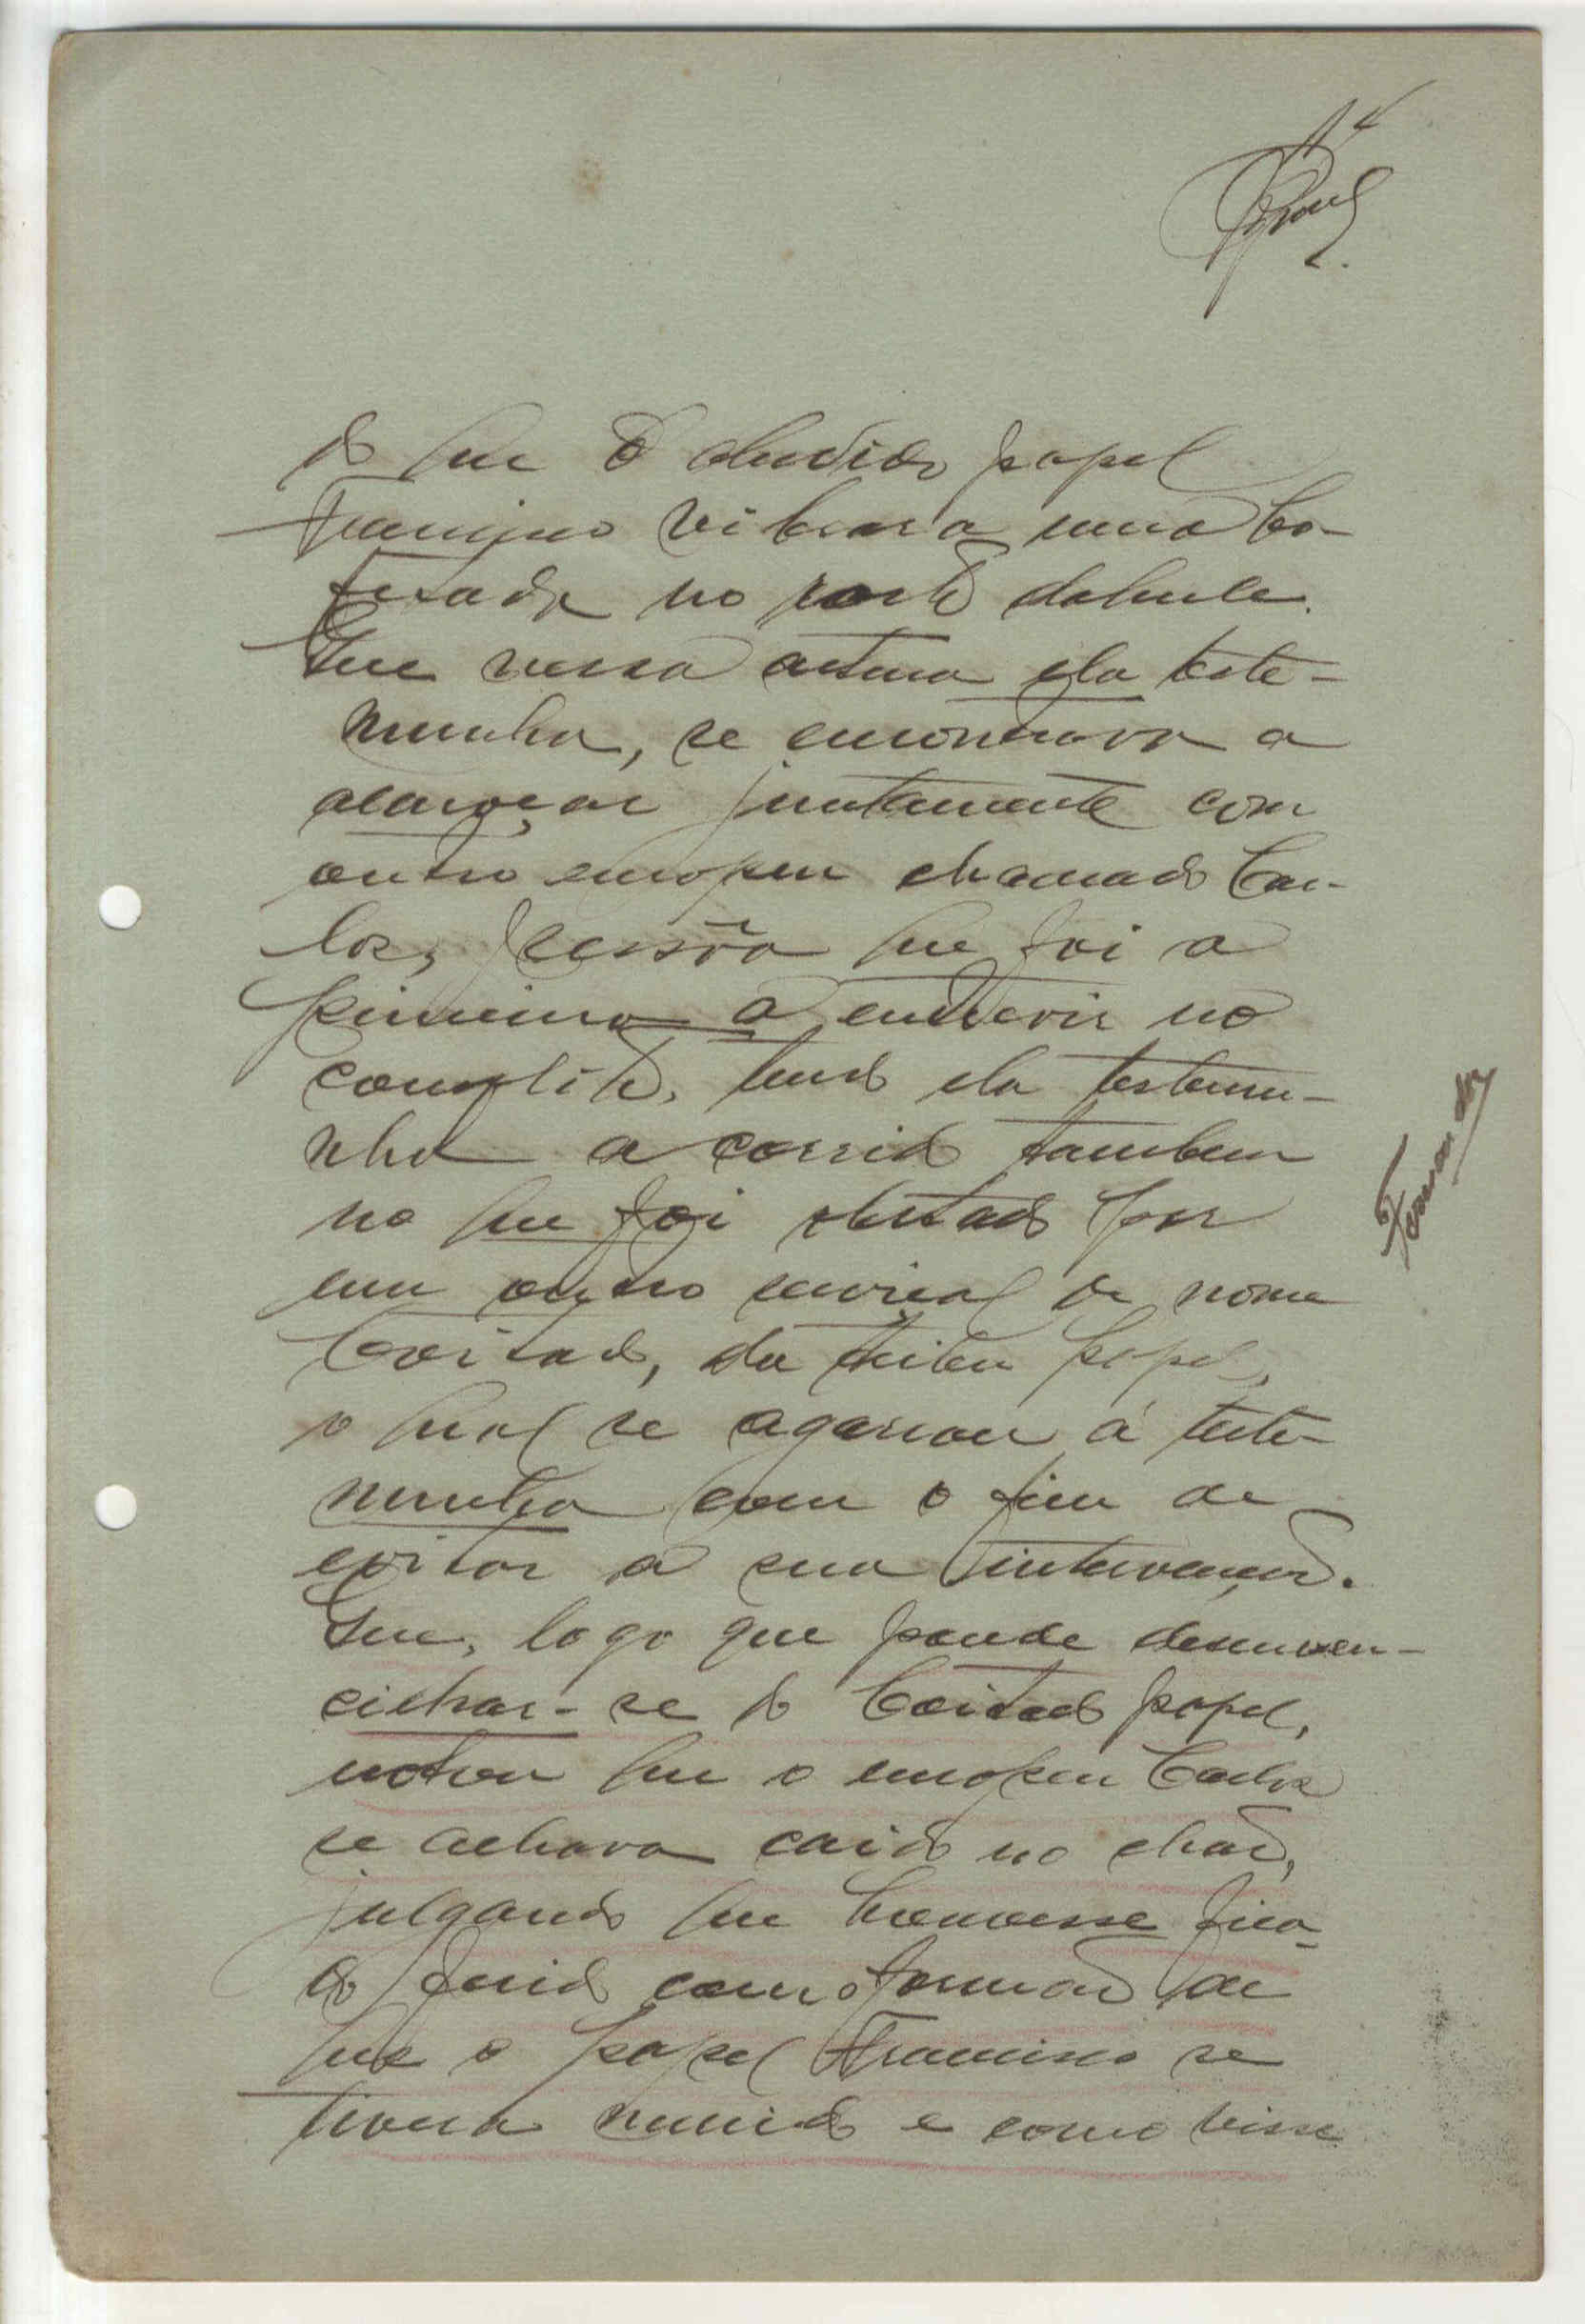 14
do que o aludido papel
Francisco vibrara uma bo-
fetada no rosto daquele.
Que nessa altura ela teste-
munha, se encontrava a
almoçar juntamente com
outro europeu chamado Car-
los, pessôa que foi a
primeira a intervir no
conflito, tendo ela testemu-
nha acorrido tambem
no que foi obstado por
um outro serviçal de nome
Coitado, da tribu papel,
o qual se agarrou á teste-
munha com o fim de
evitar a sua intervenção.
Que, logo que poude desenven-
cilhar-se do Coitado papel,
notou que o europeu Carlos
se achava caido no chão,
julgando que houvesse fica-
do ferido com o formão de
que o papel Francisco se
tivera munido e como visse